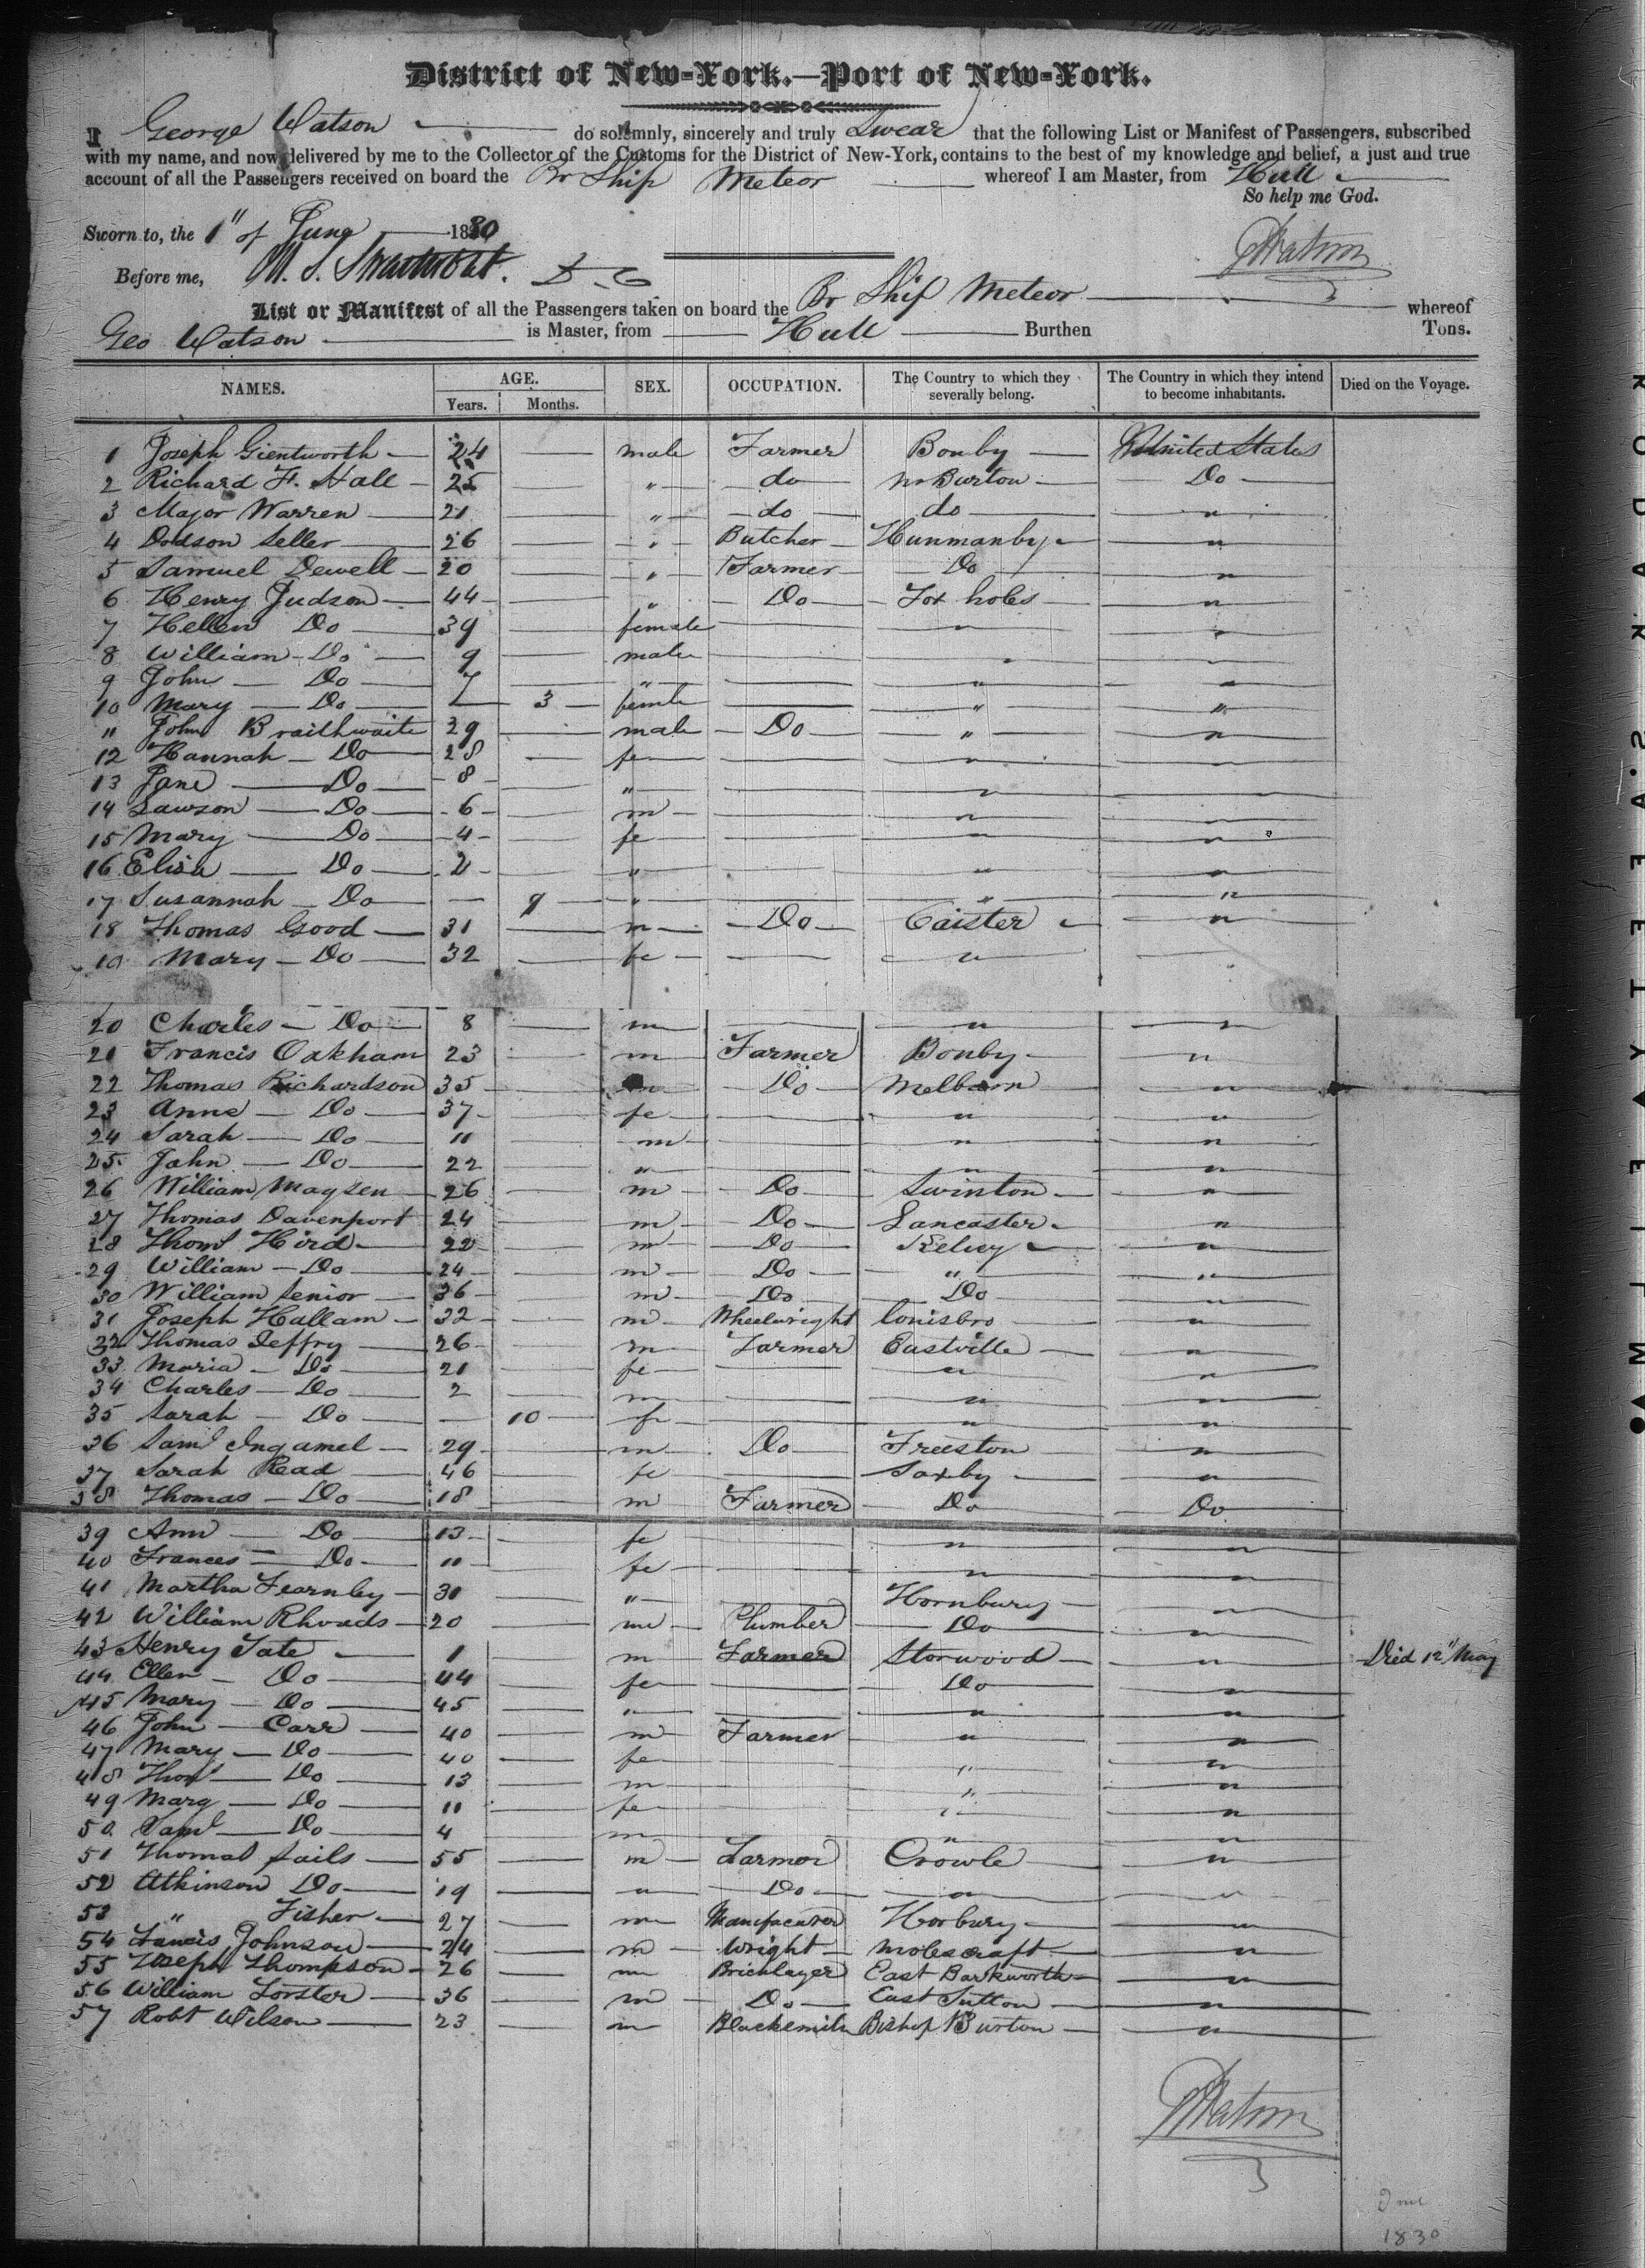 District of New-York.—Port of New-York.
I George Watson do solemnly, sincerely and truly Swear that the following List or Manifest of Passengers, subscribed
with my name, and now delivered by me to the Collector of the Customs for the District of New-York, contains to the best of my knowledge and belief, a just and true
account of all the Passengers received on board the Br Ship Meteor whereof I am Master, from Hull
So help me God.
Sworn to, the 1" of June 1830
Before me, M. S. D. C
GWatson
List or Manifest of all the Passengers taken on board the Br Ship Meteor whereof
Geo Watson is Master, from Hull Burthen Tons.
NAMES. AGE. SEX. OCCUPATION. The Country to which they severally belong. The Country in which they intend to become inhabitants. Died on the Voyage.
Years. Months.
1 Joseph Gientworth 24 male Farmer Bonby United States
2 Richard F. Hall 25 " do Burton Do
3 Major Warren 21 " do do "
4 Dodson Seller 26 " Butcher Hunmanby "
5 Samuel Dewell 20 " Farmer Do "
6 Henry Judson 44 " Do Fox holes "
7 Hellen Do 39 female " "
8 William Do 9 male "
9 John Do 7 " " "
10 Mary Do 3 female " "
11 John Braithwaite 29 male Do " "
12 Hannah Do 28 fe " "
13 Jane Do 8 " " "
14 Lawson Do 6 m " "
15 Mary Do 4 fe " "
16 Eliza Do 2 " " "
17 Susannah Do 9 " " "
18 Thomas Good 31 m Do Caister "
19 Mary Do 32 fe "
20 Charles Do 8 m " "
21 Francis Oakham 23 m Farmer Bonby "
22 Thomas Richardson 35 m Do Melbarn "
23 Anne Do 37 fe " "
24 Sarah Do 11 m " "
25 John Do 22 " " "
26 William Mayzen 26 m Do Swinton "
27 Thomas Davenport 24 m Do Lancaster "
28 Thoms Hird 22 m Do Kelsey "
29 William Do 24 m Do " "
30 William Senior 36 m Do Do "
31 Joseph Hallam 32 m Wheelwright Conisbro "
32 Thomas Jeffry 26 m Farmer Eastville "
33 Maria Do 21 fe " "
34 Charles Do 2 m " "
35 Sarah Do 10 fe " "
36 Saml Ingamel 29 m Do Freeston "
37 Sarah Read 46 fe Saxby "
38 Thomas Do 18 m Farmer Do Do
39 Ann Do 13 fe " "
40 Frances Do 11 fe " "
41 Martha Fearnley 30 " Hornbury "
42 William Rhoads 20 m Plumber Do "
43 Henry Tate 1 m Farmer Storwood " Died 12" May
44 Ellen Do 44 fe Do "
45 Mary Do 45 " " "
46 John Carr 40 m Farmer " "
47 Mary Do 40 fe " "
48 Thos Do 13 m " "
49 Mary Do 11 fe " "
50 Saml Do 4 m " "
51 Thomas Sails 55 m Farmer Crowle "
52 Atkinson Do 19 " Do " "
53 " Fisher 27 m Manufacurer Horbury "
54 Francis Johnson 24 m Wright Molescraft "
55 Joseph Thompson 26 m Bricklayer East Barkworth "
56 William Forster 36 m Do East Sutton "
57 Robt Wilson 23 m Blacksmith Bishop Burton "
GWatson
June
1830